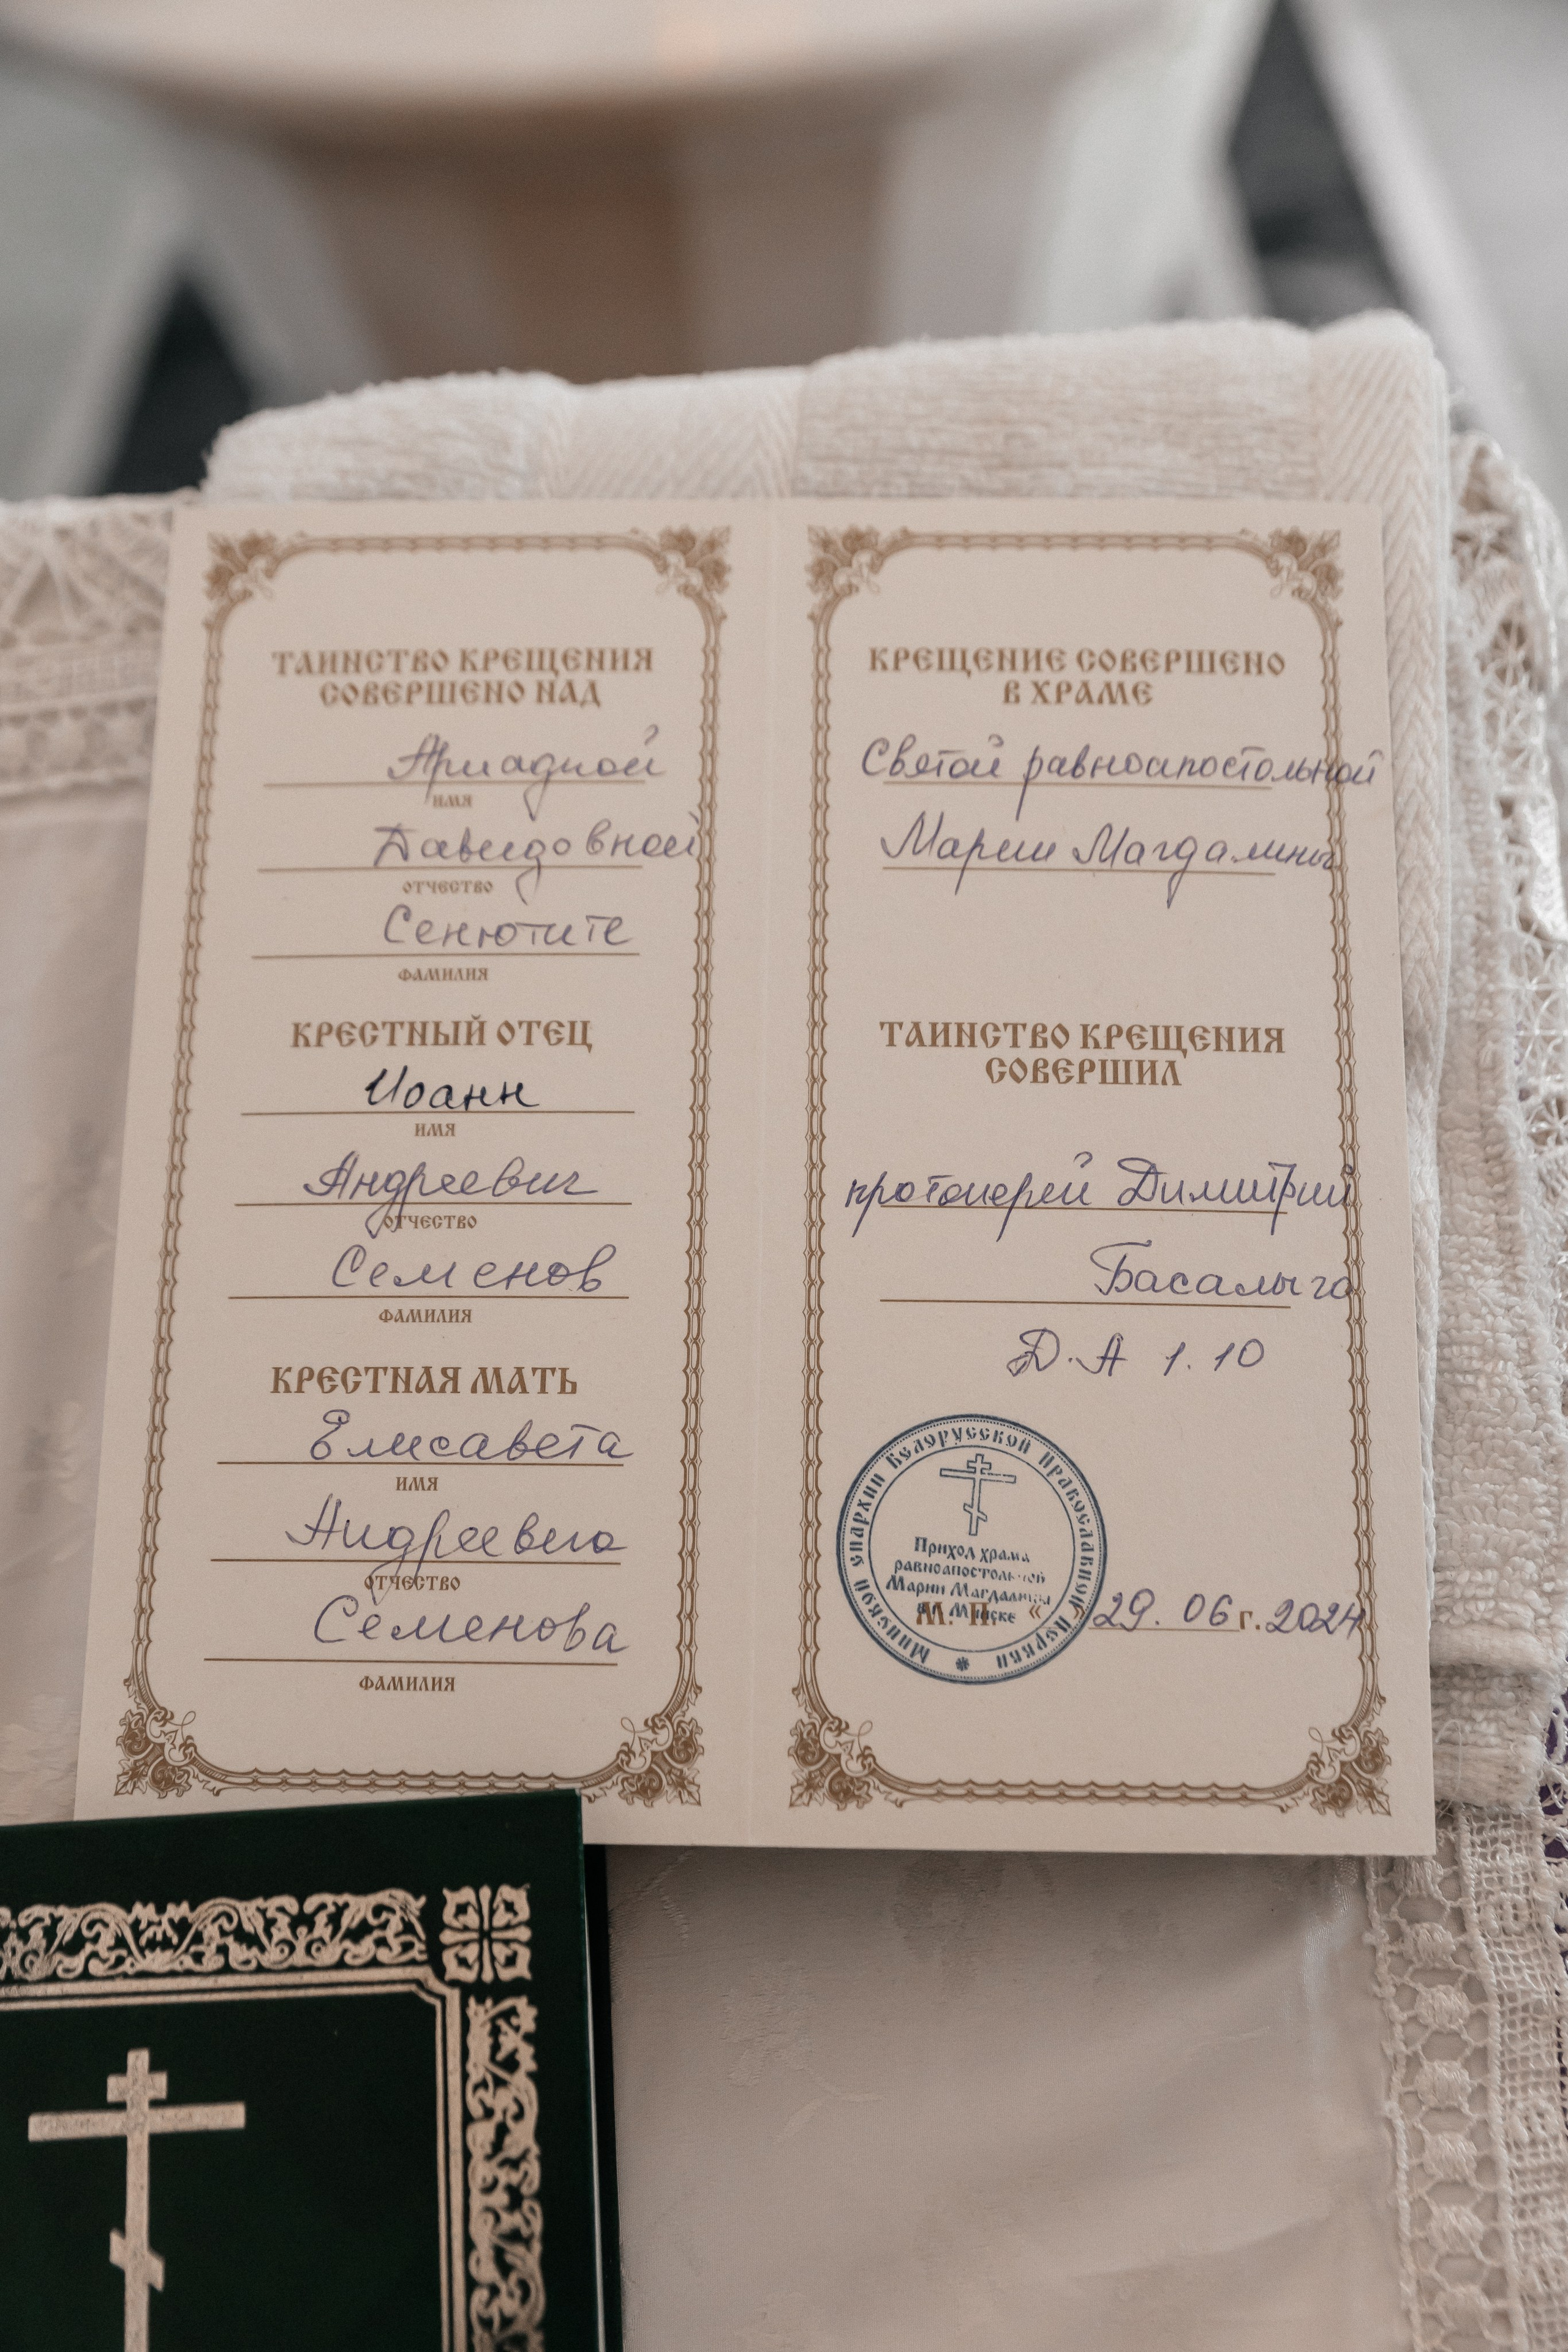 ТАИНСТВО КРЕЩЕНИЯ
СОВЕРШЕНО НАД
Ариадной
имя
Давидовной
отчество
Сенютите
фамилия
КРЕСТНЫЙ ОТЕЦ
Иоанн
имя
Андреевич
отчество
Семенов
фамилия
КРЕСТНАЯ МАТЬ
Елисавета
имя
Андреевна
отчество
Семенова
фамилия
КРЕЩЕНИЕ СОВЕРШЕНО
В ХРАМЕ
Святой равноапостольной
Марии Магдалины
ТАИНСТВО КРЕЩЕНИЯ
СОВЕРШИЛ
протоиерей Димитрий
Басалыго
Д.А 1.10
Минской епархии Белорусской Православной Церкви
Приход храма
равноапостольной
Марии Магдалины
в г. Минске
М. П. « 29. 06 г. 2024